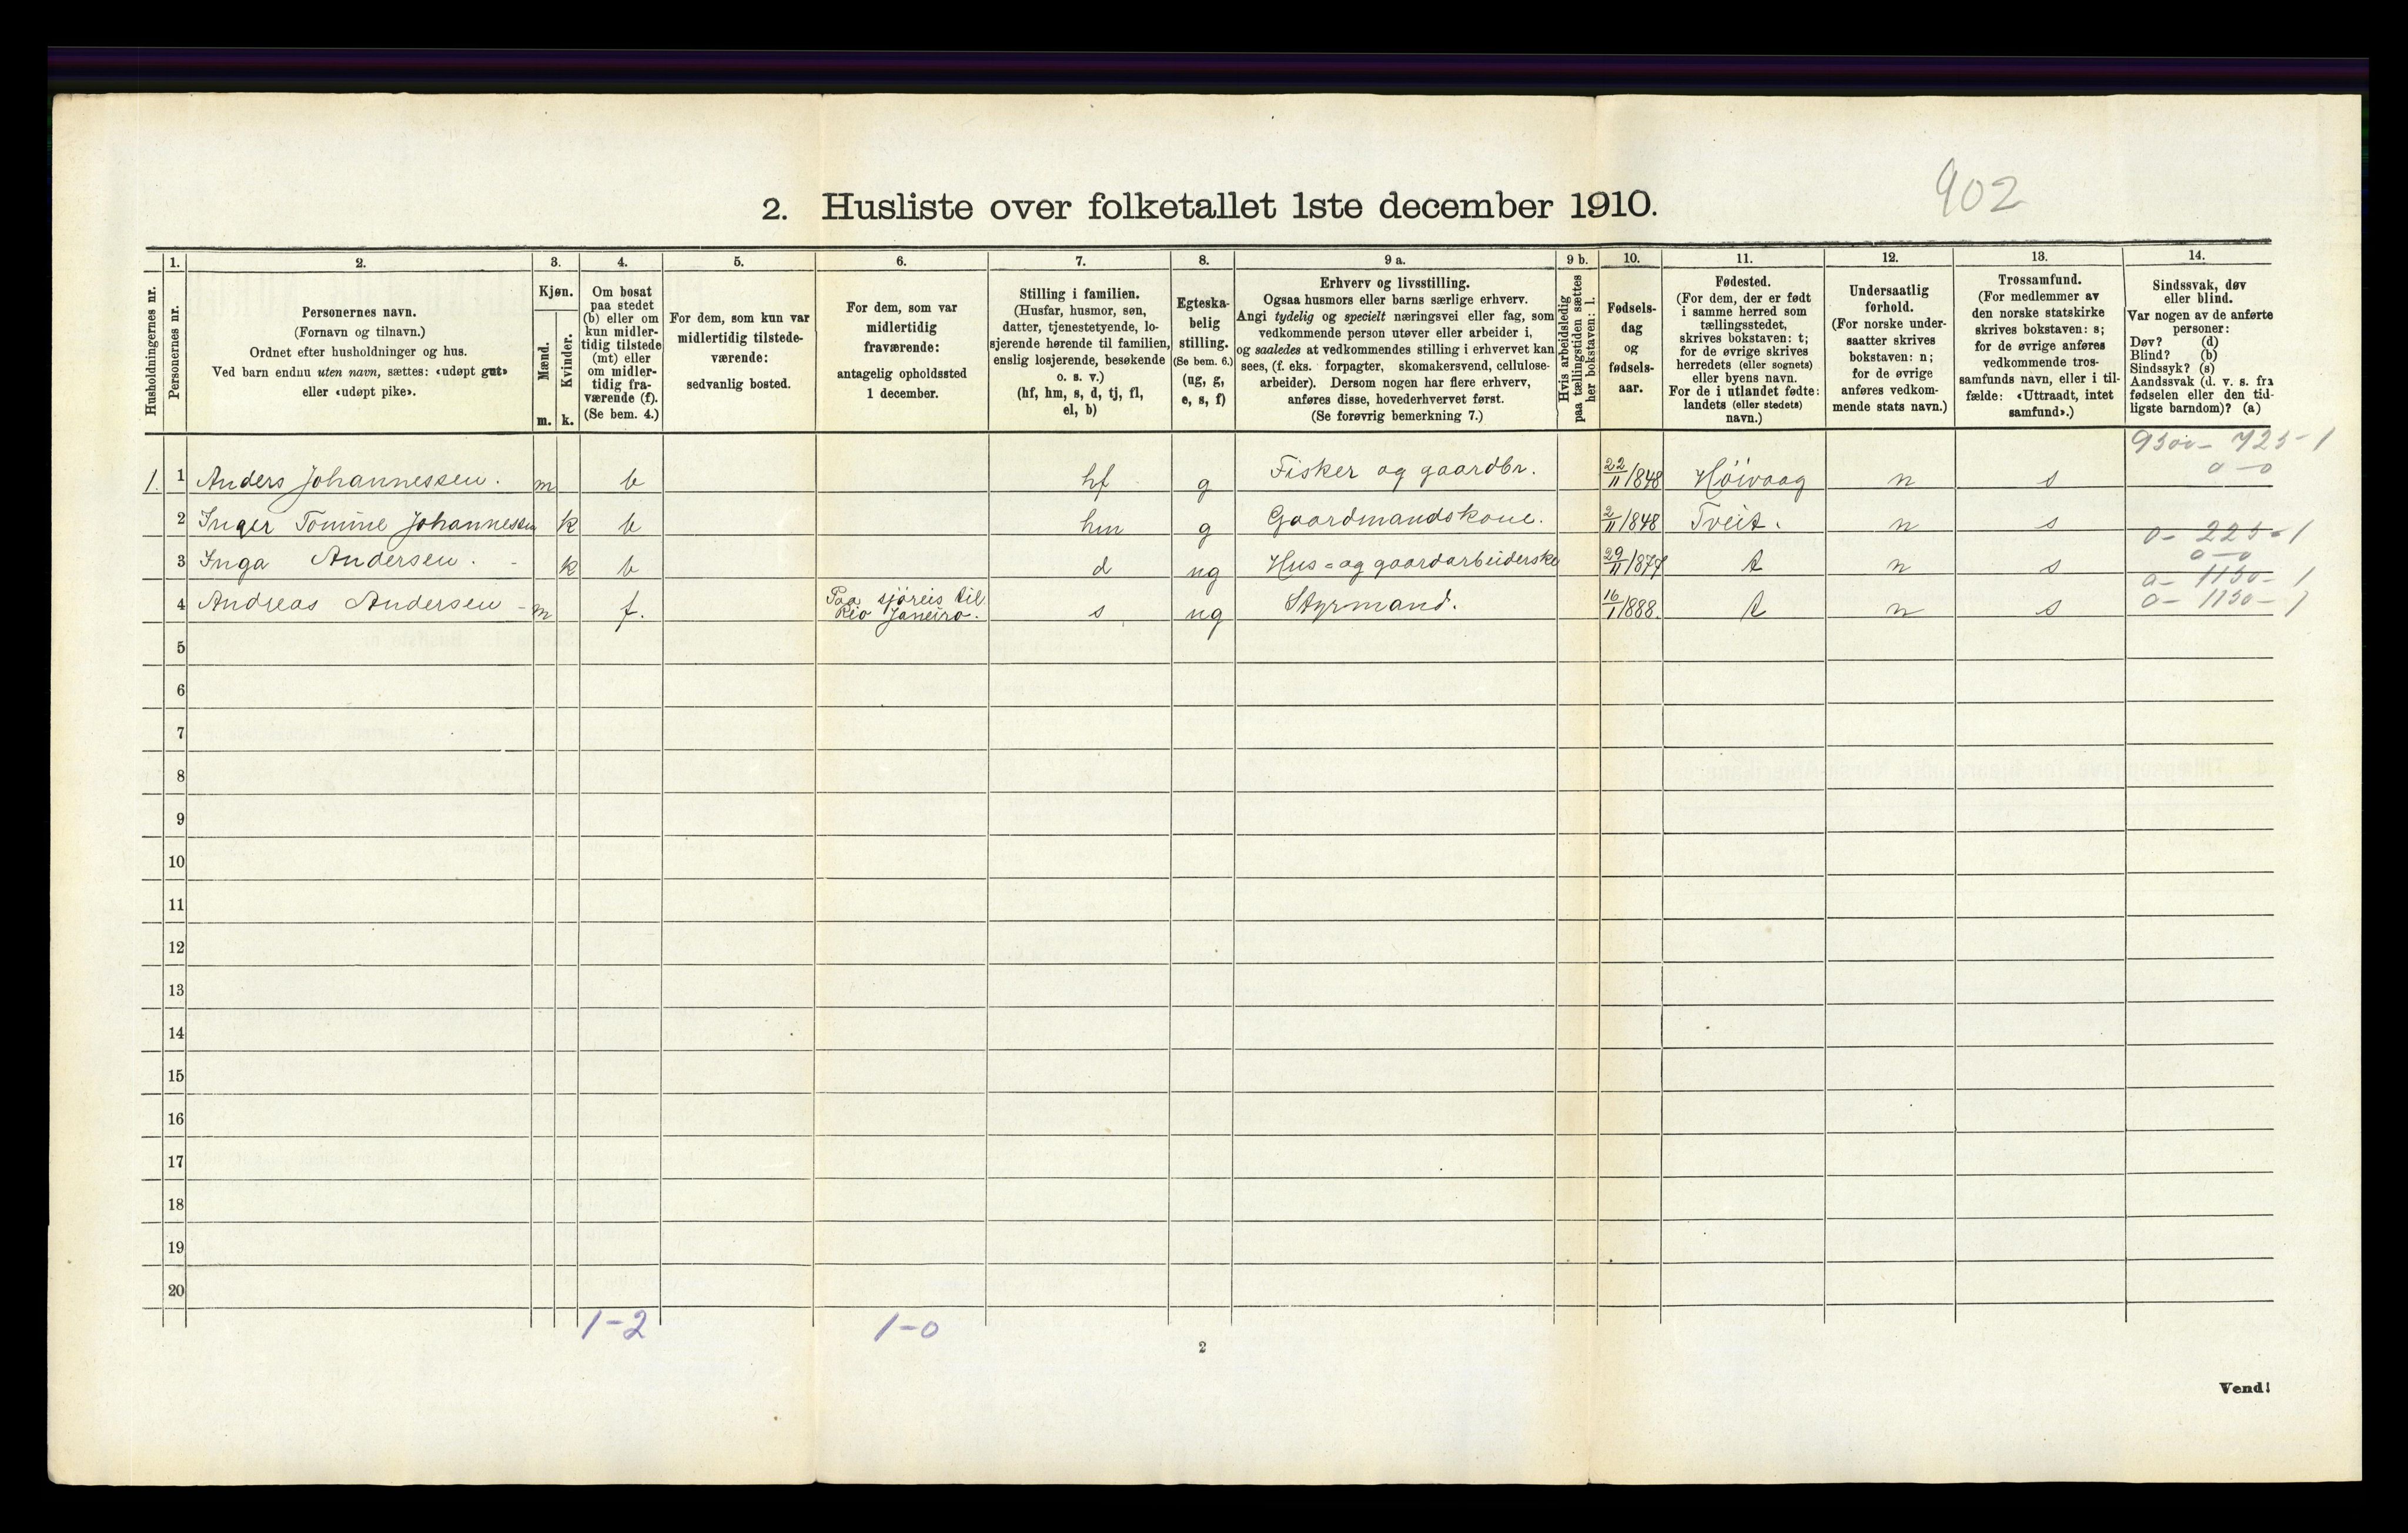 902
2. Husliste over folketallet 1ste december 1910.
Husholdningernes nr.
1.
Personernes nr.
2.
Personernes navn.
(Fornavn og tilnavn.)
Ordnet efter husholdninger og hus.
Ved barn endnu uten navn, sættes: «udøpt gut»
eller «udøpt pike».
3.
Kjøn.
Mænd.
m.
Kvinder.
k.
4.
Om bosat
paa stedet
(b) eller om
kun midler-
tidig tilstede
(mt) eller
om midler-
tidig fra-
værende (f).
(Se bem. 4.)
5.
For dem, som kun var
midlertidig tilstede-
værende:
sedvanlig bosted.
6.
For dem, som var
midlertidig
fraværende:
antagelig opholdssted
1 december.
7.
Stilling i familien.
(Husfar, husmor, søn,
datter, tjenestetyende, lo-
sjerende hørende til familien,
enslig losjerende, besøkende
o. s. v.)
(hf, hm, s, d, tj, fl,
el, b)
8.
Egteska-
belig
stilling.
(Se bem. 6.)
(ug, g,
e, s, f)
9 a.
Erhverv og livsstilling.
Ogsaa husmors eller barns særlige erhverv.
Angi tydelig og specielt næringsvei eller fag, som
vedkommende person utøver eller arbeider i,
og saaledes at vedkommendes stilling i erhvervet kan
sees, (f. eks. forpagter, skomakersvend, cellulose-
arbeider). Dersom nogen har flere erhverv,
anføres disse, hovederhvervet først.
(Se forøvrig bemerkning 7.)
9 b.
Hvis arbeidsledig
paa tællingstiden sættes
her bokstaven: l.
10.
Fødsels-
dag
og
fødsels-
aar.
11.
Fødested.
(For dem, der er født
i samme herred som
tællingsstedet,
skrives bokstaven: t;
for de øvrige skrives
herredets (eller sognets)
eller byens navn.
For de i utlandet fødte:
landets (eller stedets)
navn.)
12.
Undersaatlig
forhold.
(For norske under-
saatter skrives
bokstaven: n;
for de øvrige
anføres vedkom-
mende stats navn.)
13.
Trossamfund.
(For medlemmer av
den norske statskirke
skrives bokstaven: s;
for de øvrige anføres
vedkommende tros-
samfunds navn, eller i til-
fælde: «Uttraadt, intet
samfund».)
14.
Sindssvak, døv
eller blind.
Var nogen av de anførte
personer:
Døv? (d)
Blind? (b)
Sindssyk? (s)
Aandssvak (d. v. s. fra
fødselen eller den tid-
ligste barndom)? (a)
9500- 725-1
0-0
1. 1 Anders Johannessen. m b hf g Fisker og gaardbr. 22/11 1848 Höivaag n s
2 Inger Tomine Johannessen k b hm g Gaardmandskone. 2/11 1848 Tveit. n s
0- 225-1
0-0
3 Inga Andersen. - k b d ug Hus=og gaardarbeiderske 29/11 1877 t n s
0- 1150-1
4 Andreas Andersen - m f. Paa sjöreis til
Rio Janeiro. s ug Styrmand. 16/1 1888. t n s 0- 1150-1
5
6
7
8
9
10
11
12
13
14
15
16
17
18
19
20
1-2 1-0
2
Vend!